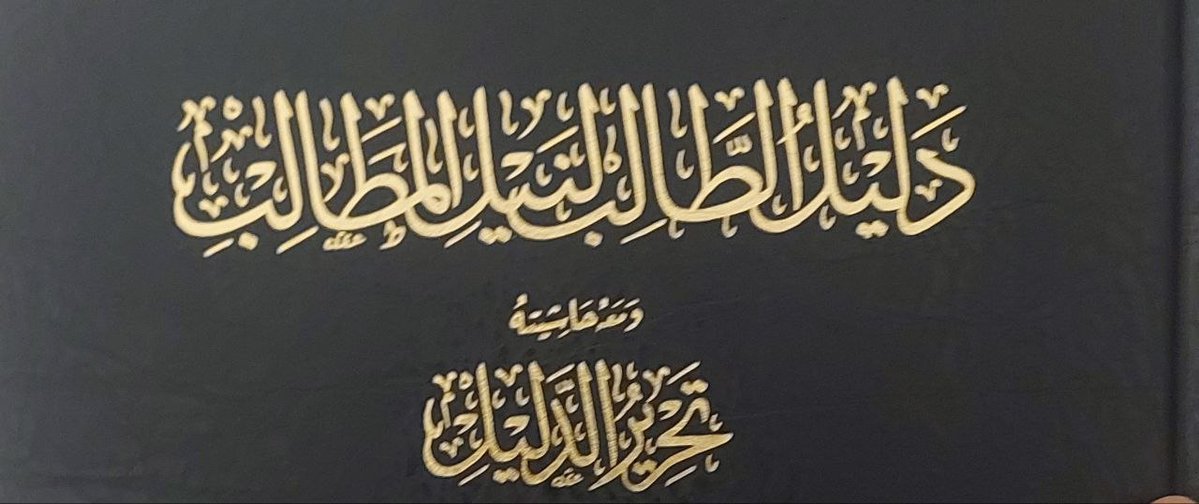 دَلِيْلُ الطَّالِبْ لنَيْلِ المَطَالِبِ
وَمَعَهُ حَاشِيَتهُ
تَحْرِيْرُ الدَّلِيْلِ